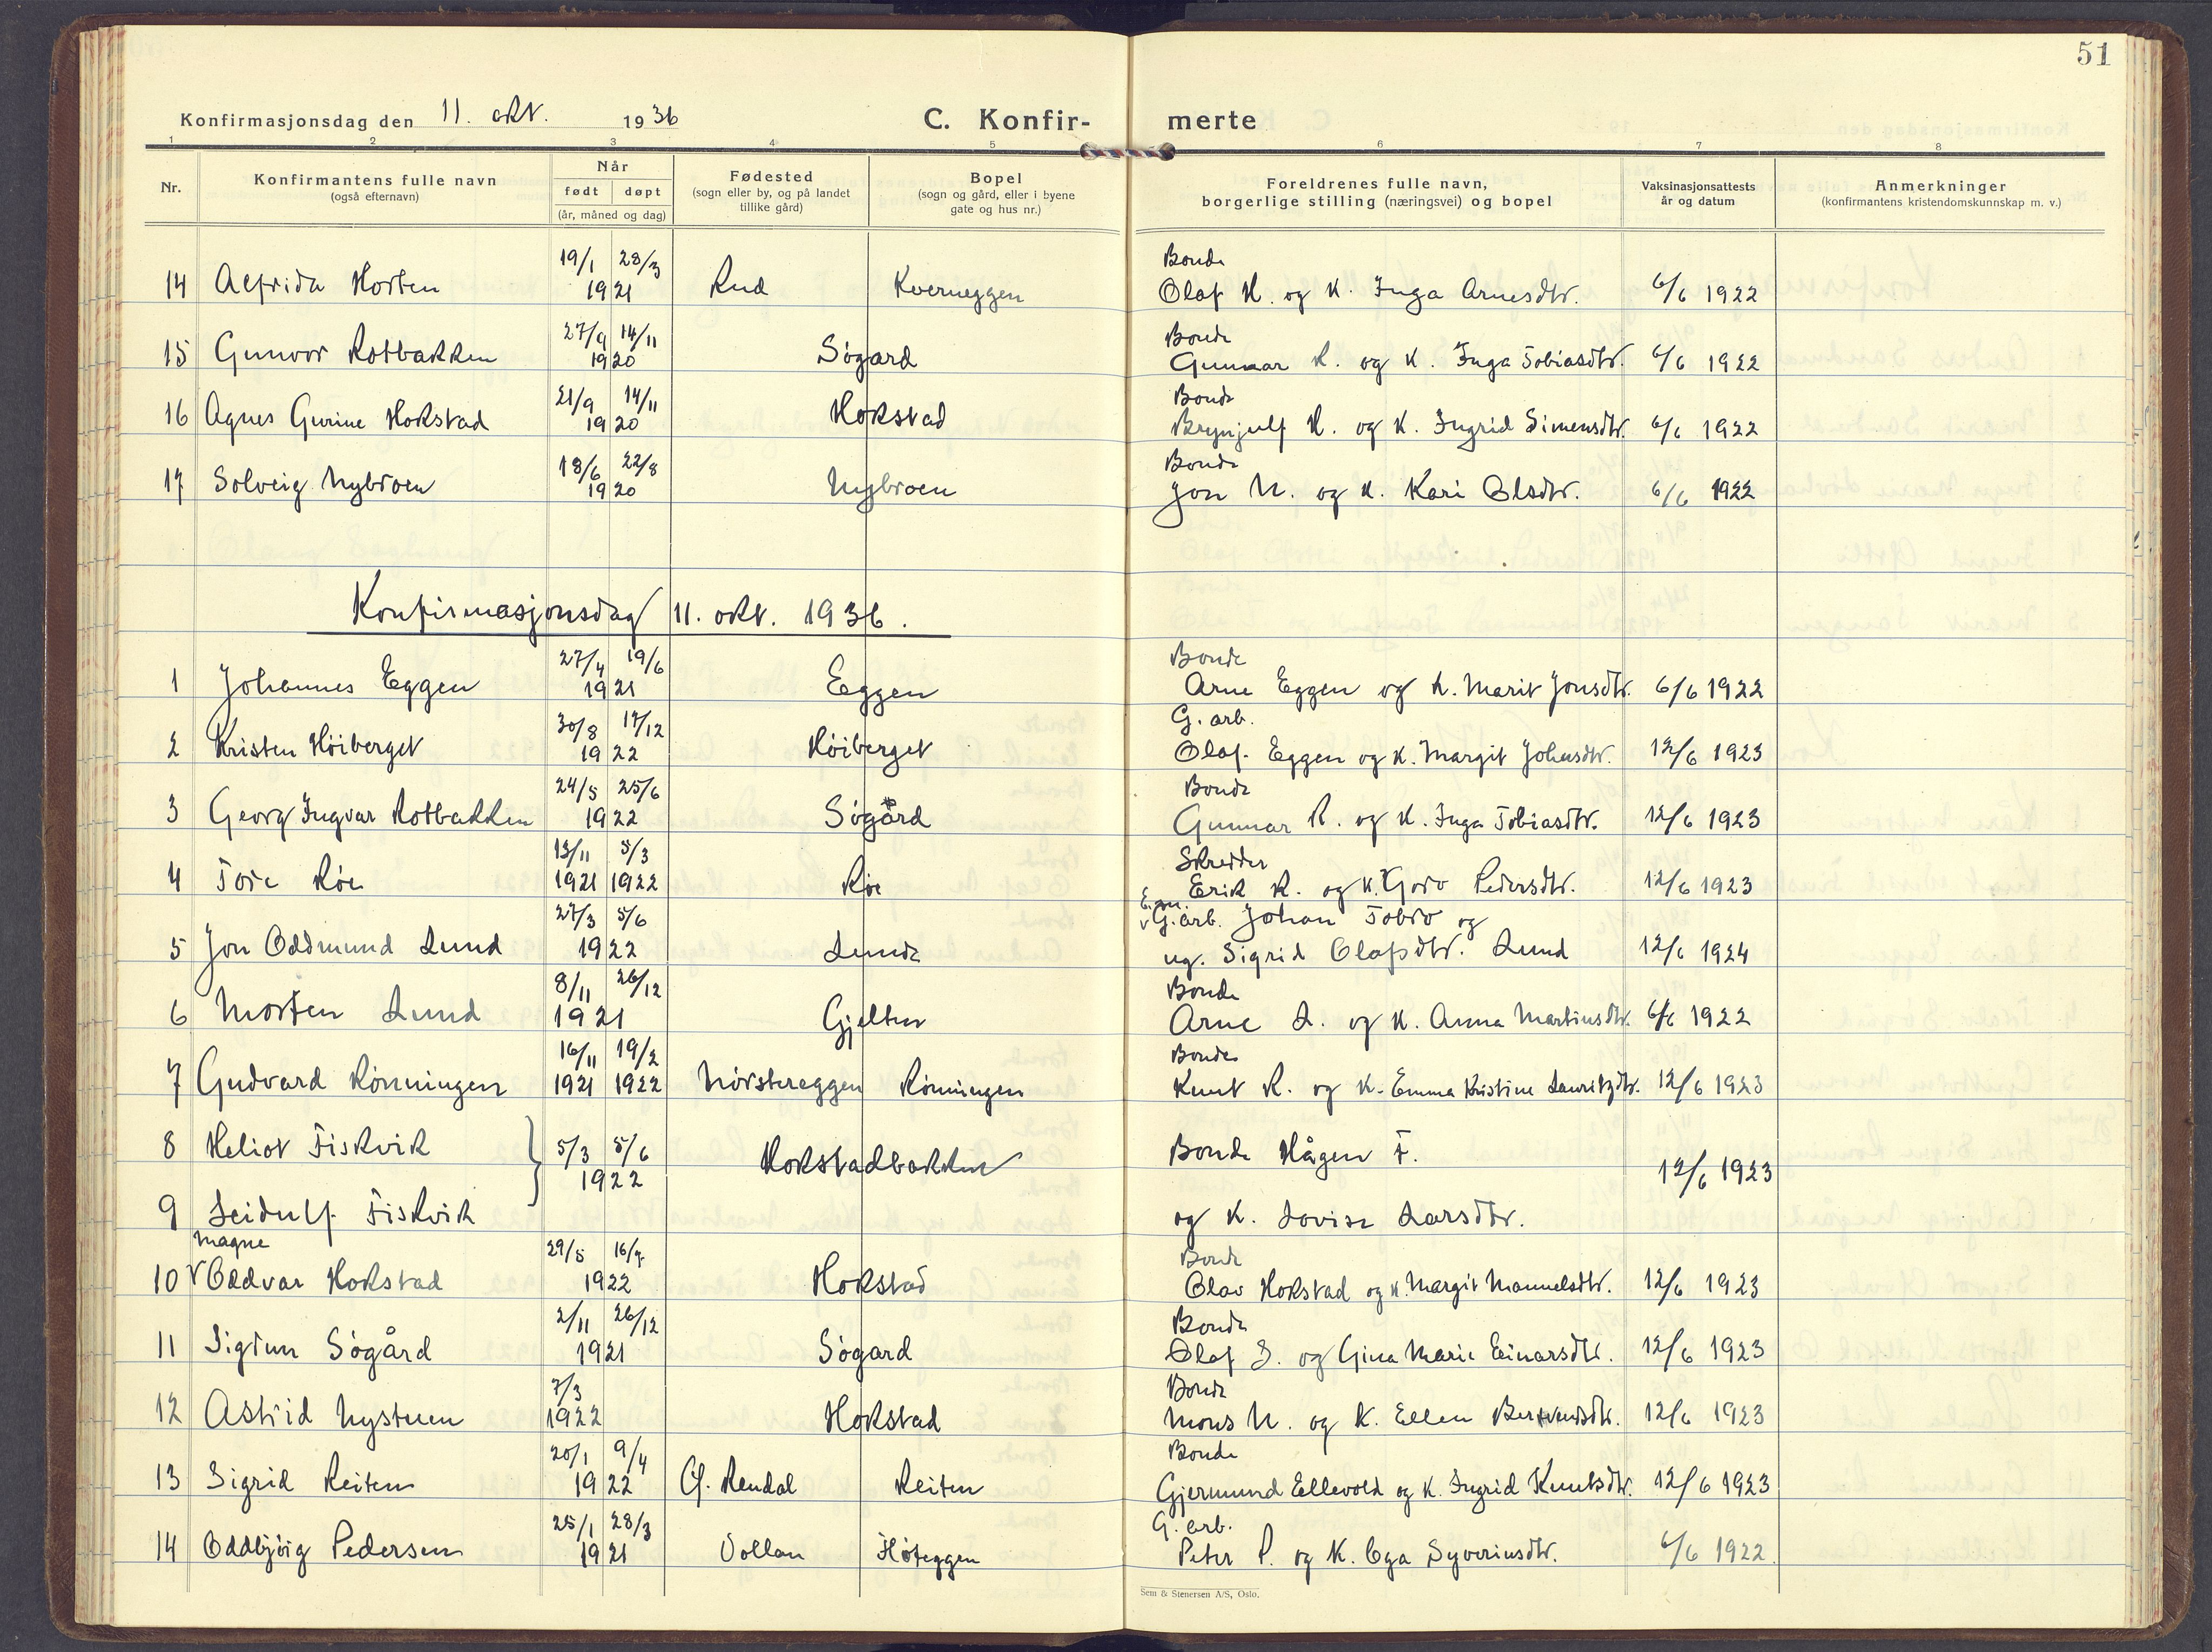 51
Konfirmasjonsdag den 11. okt. 1936
C. Konfir-
merte
1 2 3 4 5 6 7 8
Nr.
Konfirmantens fulle navn
(også efternavn)
Når
født døpt
(år, måned og dag)
Fødested
(sogn eller by, og på landet
tillike gård)
Bopel
(sogn og gård, eller i byene
gate og hus nr.)
Foreldrenes fulle navn,
borgerlige stilling (næringsvei) og bopel
Vaksinasjonsattests
år og datum
Anmerkninger
(konfirmantens kristendomskunnskap m. v.)
19/1 28/3 Bonde
14 Alfrida Horten 1921 Rud Kverneggen Olaf H. og K. Inga Arnesdtr. 6/6 1922
27/9 14/11 Bonde
15 Gunvor Rotbakken 1920 Søgard Gunnar R. og K. Inga Tobiasdtr. 6/6 1922
21/9 14/11 Bonde
16 Agnes Gurine Hokstad 1920 Hokstad Brynjulf H. og K. Ingrid Simensdtr. 6/6 1922
18/6 22/8 Bonde
17 Solveig Nybroen 1920 Nybroen Jon N. og K. Kari Olsdtr. 6/6 1922
Konfirmasjonsdag 11. okt. 1936.
27/4 19/6 Bonde
1 Johannes Eggen 1921 Eggen Arne Eggen og K. Marit Jonsdtr. 6/6 1922
30/8 17/12 G. arb.
2 Kristen Høiberget 1922 Høiberget Olaf Eggen og K. Margit Johnsdtr. 12/6 1923
24/5 25/6 Bonde
3 Georg Ingvar Rotbakken 1922 Søgård Gunnar R. og K. Inga Tobiasdtr. 12/6 1923
13/11 5/3 Skredder
4 Tore Røe 1921 1922 Røe Erik R. og K. Goro Pedersdtr. 12/6 1923
27/3 5/6 G. arb. Johan Tobro og
5 Jon Oddmund Lund 1922 Lunde ug. Sigrid Olafsdtr. Lund 12/6 1924
8/11 26/12 Bonde
6 Morten Lund 1921 Gjelten Arne L. og K. Anna Martinsdtr. 6/6 1922
16/11 19/2 Bonde
7 Gudvard Rønningen 1921 1922 Nørstereggen Rønningen Knut R. og K. Emma Kristine Lauritzdtr. 12/6 1923
8 Heliot Fiskvik } 5/3 5/6 Hokstadbakken Bonde Hågen F.
1922 12/6 1923
9 Leidulf Fiskvik og K. Lovise Larsdtr.
Magne 29/5 16/7 Bonde
10 √ Oddvar Hokstad 1922 Hokstad Olav Hokstad og K. Margit Manuelsdtr. 12/6 1923
2/11 26/12 Bonde
11 Sigrun Søgård 1921 Søgard Olaf S. og Gina Marie Einarsdtr. 12/6 1923
7/3 Bonde
12 Astrid Nystuen 1922 Hokstad Mons N. og K. Ellen 12/6 1923
20/1 9/4 Bonde
13 Sigrid Reiten 1922 Ø. Rendal Reiten Gjermund Ellevold og K. Ingrid Knutsdtr. 12/6 1923
25/1 28/3 G. arb.
14 Oddbjørg Pedersen 1921 Vollan Høteggen Peter P. og K. Oga Syverinsdtr. 6/6 1922.
Sem & Stenersen A/S, Oslo.